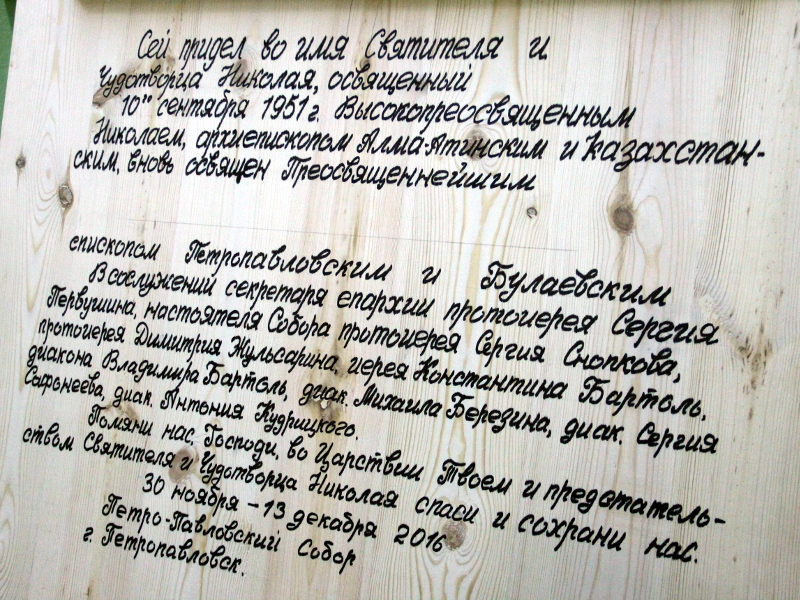 Сей придел во имя Святителя и
Чудотворца Николая, освященный
10го сентября 1951 г. Высокопреосвященным
Николаем, архиепископом Алма-Атинским и Казахстан-
ским, вновь освящен Преосвященнейшим
епископом Петропавловским и Булаевским
В сослужении секретаря епархии протоиерея Сергия
Первушина, настоятеля Собора протоиерея Сергия Снопкова,
протоиерея Димитрия Жульсарина, иерея Константина Бартоль,
диакона Владимира Бартоль, диак. Михаила Березина, диак. Сергия
Сафонеева, диак. Антония Кудрицкого.
Помяни нас, Господи, во Царствии Твоем и предстатель-
ством Святителя и Чудотворца Николая спаси и сохрани нас.
30 ноября – 13 декабря 2016
Петро-Павловский Собор
г. Петропавловск.